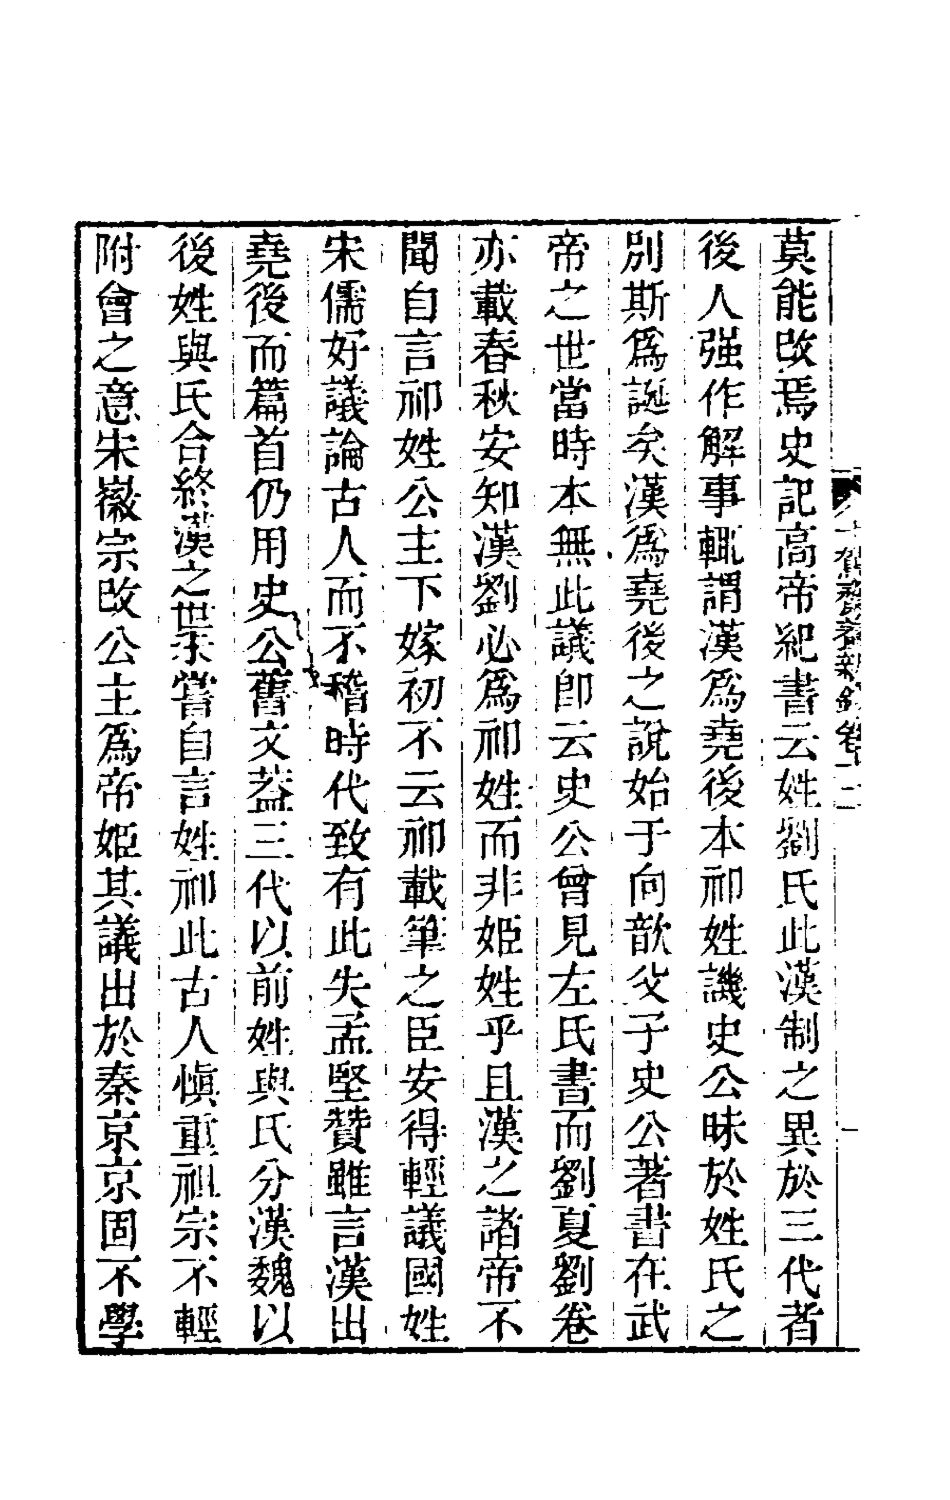 莫能改焉史記高帝紀書云姓劉氏此漢制之異於三代者
後人强作解事輒謂漢爲堯後本祁姓譏史公昧於姓氏之
別斯爲誕矣漢爲堯後之說始于向歆父子史公著書在武
帝之世當時本無此議卽云史公曾見左氏書而劉夏劉卷
亦載春秋安知漢劉必爲祁姓而非姬姓乎且漢之諸帝不
聞自言祁姓公主下嫁初不云祁載筆之臣安得輕議國姓
宋儒好議論古人而不稽時代致有此失孟堅贊雖言漢出
堯後而篇首仍用史公舊文葢三代以前姓與氏分漢魏以
後姓與氏合終漢之世未嘗自言姓祁此古人愼重祖宗不輕
附會之意宋徽宗改公主爲帝姬其議出於秦京京固不學
十駕齋養新錄卷十二